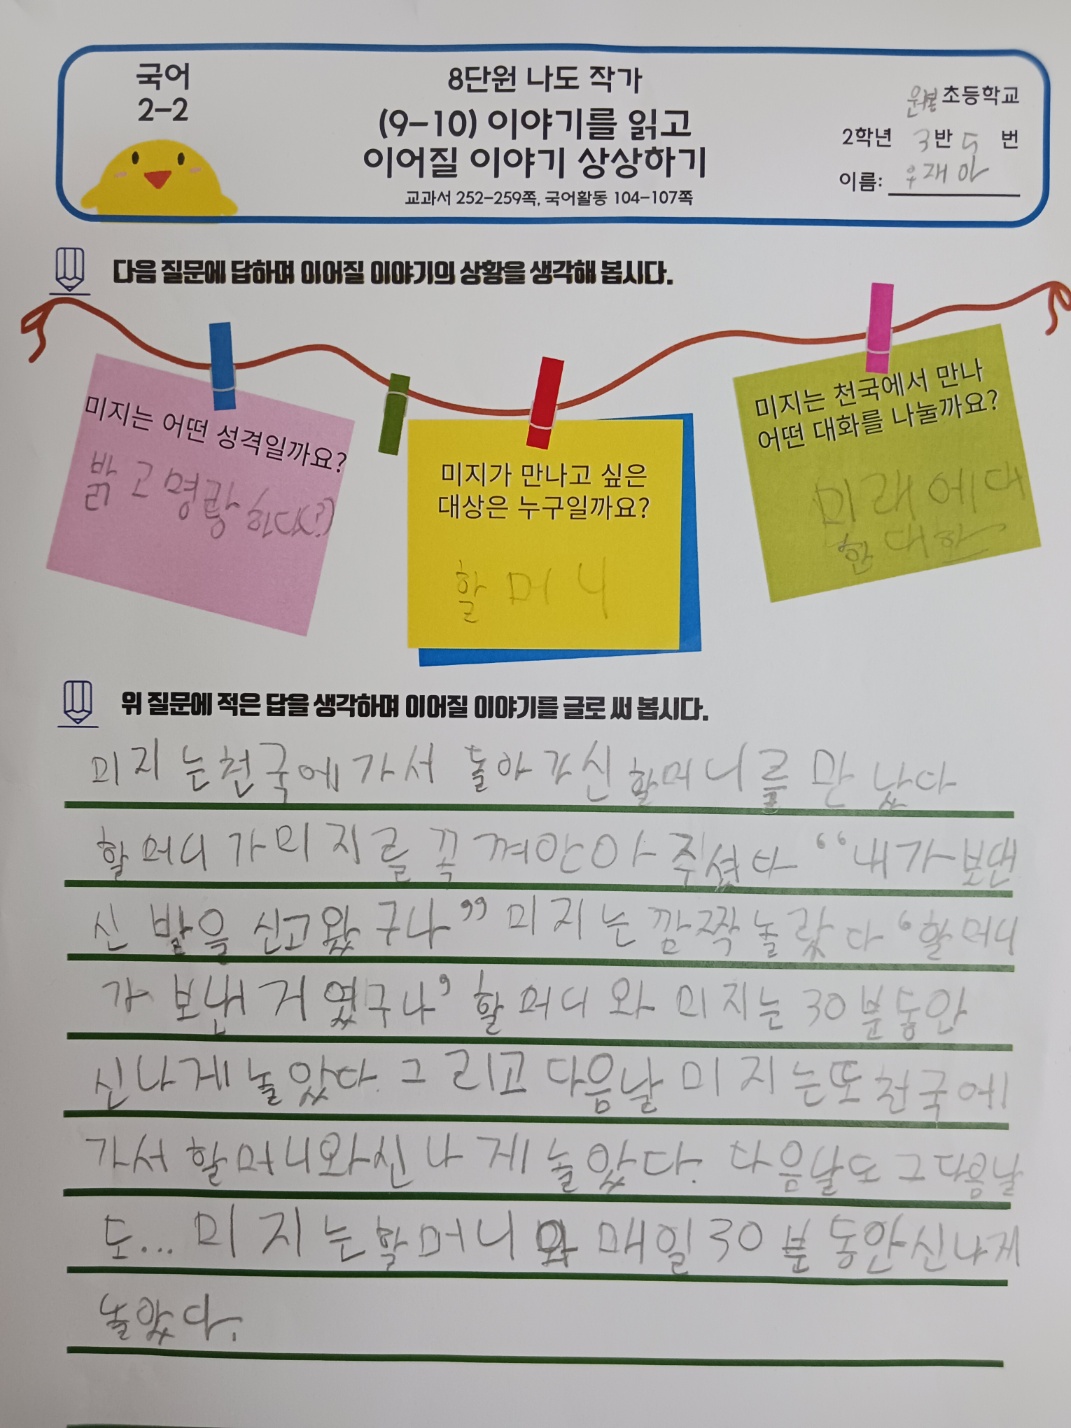 국어
2-2
8단원 나도 작가
(9-10) 이야기를 읽고
이어질 이야기 상상하기
교과서 252-259쪽, 국어활동 104-107쪽
초등학교
2학년 3반 5 번
이름: 우재아
다음 질문에 답하며 이어질 이야기의 상황을 생각해 봅시다.
미지는 어떤 성격일까요?
밝고 명랑하다(?)
미지가 만나고 싶은
대상은 누구일까요?
할머니
미지는 천국에서 만나
어떤 대화를 나눌까요?
미래에 대
한 대화
위 질문에 적은 답을 생각하며 이어질 이야기를 글로 써 봅시다.
미지는 천국에 가서 돌아가신 할머니를 만났다
할머니가 미지를 꼭 껴안아 주셨다 “내가 보낸
신발을 신고왔구나” 미지는 깜짝 놀랐다 ‘할머니
가 보낸 거였구나’ 할머니와 미지는 30분동안
신나게 놀았다. 그리고 다음날 미지는 또 천국에
가서 할머니와 신나게 놀았다. 다음날도 그 다음날
도... 미지는 할머니와 매일 30분 동안 신나게
놀았다.